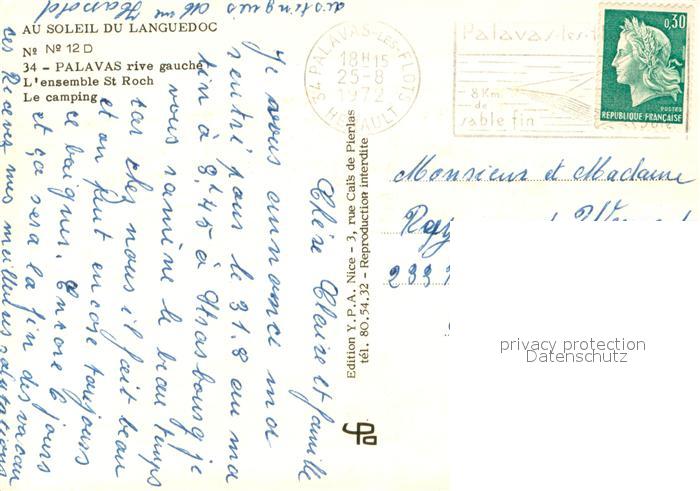 AU SOLEIL DU LANGUEDOC
Nº Nº 12 D
34 - PALAVAS rive gauche
L'ensemble St Roch
Le camping
34 PALAVAS-LES-FLOTS
18H15
25-8
1972
HERAULT
Palavas-les-f
8 Km
de
sable fin
0,30
POSTES
REPUBLIQUE FRANÇAISE
Monsieur et Madame
233
Edition Y.P.A. Nice - 3, rue Caïs de Pierlas
tél. 80.54.32 - Reproduction interdite
privacy protection
Datenschutz
Chère Claire et famille
Je vous annonce ma
rentrée pour le 31.8 au ma
tin à 8h45 à Strasbourg je
vous ramène le beau temps
car chez nous il fait beau
et on peut encore toujours
ce baigner. Encore 6 jours
et ça sera la fin des vacan
ces Recevez mes meilleures salutations